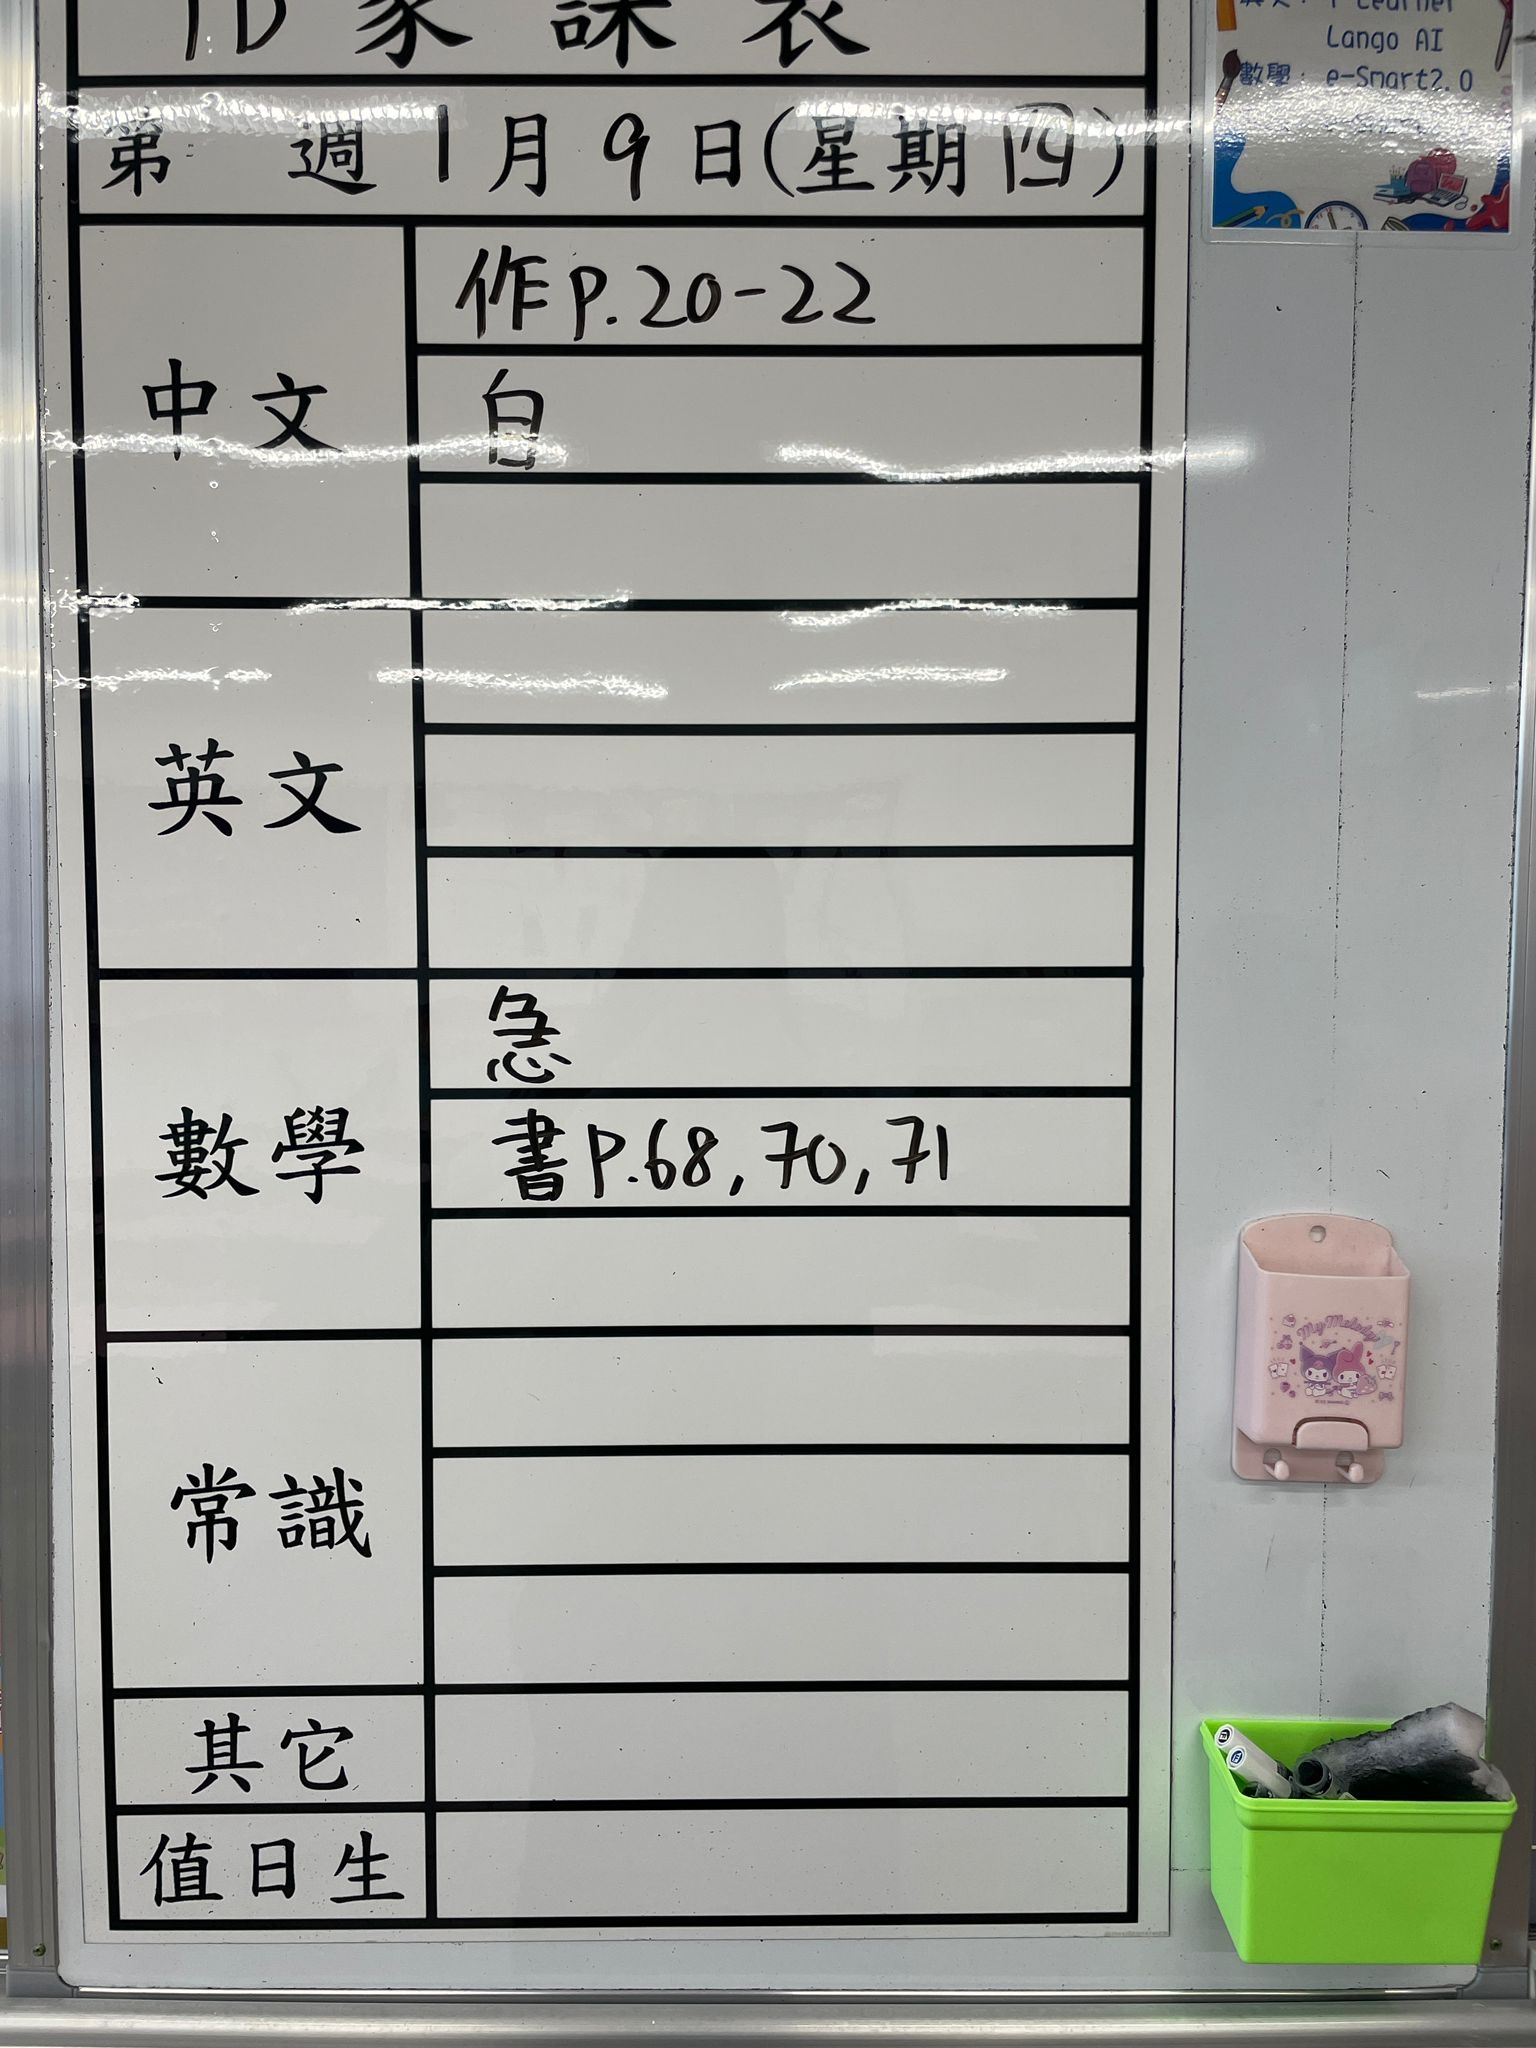 1D 家課表
第 週 1月9日(星期四)
中文
作P.20-22
自
英文
數學
急
書P.68,70,71
常識
其它
值日生
Lango AI
數學: e-Smart2.0
My Melody